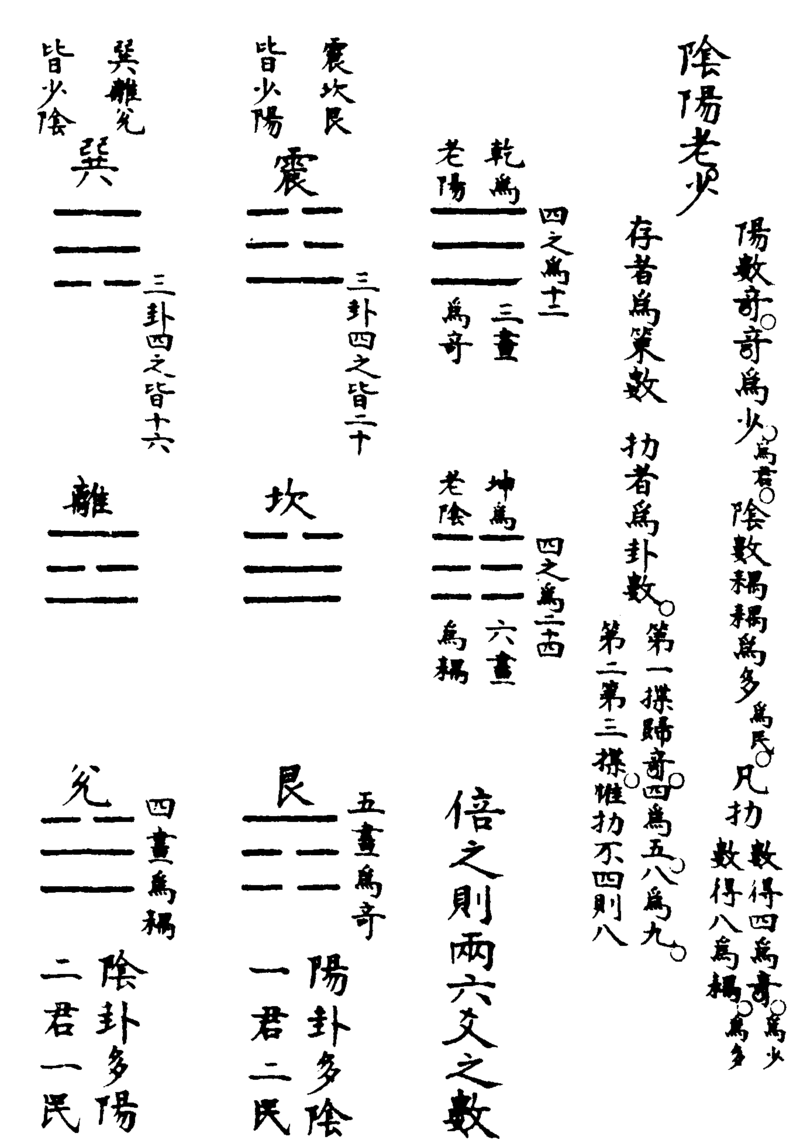 陰陽老少
陽數竒竒爲少爲君陰數耦耦爲多爲民凡扐
數得四爲竒爲少
數得八爲耦爲多
存者爲策數 扐者爲卦數
第一揲歸竒四爲五八爲九
第二第三揲惟扐不四則八
乾爲
老陽
四之爲十二
三畫
爲竒
坤爲
老陰
四之爲二十四
六畫
爲耦
倍之則兩六爻之數
震坎艮
皆少陽
震
三卦四之皆二十
坎
艮
五畫爲竒
陽卦多陰
一君二民
巽離兊
皆少陰
巽
三卦四之皆十六
離
兊
四畫爲耦
陰卦多陽
二君一民